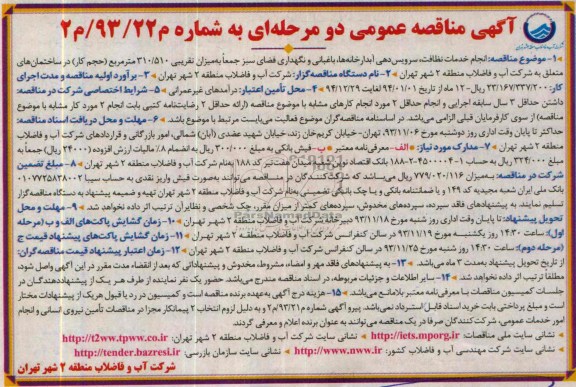 آگهی مناقصه عمومی دو مرحله‌ای به شماره م۲/۹۳/۲۲م۲
۱- موضوع مناقصه: انجام خدمات نظافت، سرویس‌دهی آبدارخانه‌ها، باغبانی و نگهداری فضای سبز جمعاً به‌میزان تقریبی ۳۱۰/۵۱۰ مترمربع (حجم کار) در ساختمان‌های
متعلق به شرکت آب و فاضلاب منطقه ۲ شهر تهران ۲- نام دستگاه مناقصه‌گزار: شرکت آب و فاضلاب منطقه ۲ شهر تهران ۳- برآورد اولیه مناقصه و مدت اجرای
کار: ۲۳/۱۶۷/۳۳۷/۲۰۰ ریال- ۱۲ ماه از تاریخ ۹۴/۰۱/۰۱ لغایت ۹۴/۱۲/۲۹ ۴- محل تأمین اعتبار: درآمدهای غیرعمرانی ۵- شرایط اختصاصی شرکت در مناقصه:
داشتن حداقل ۳ سال سابقه اجرایی و انجام حداقل ۲ مورد انجام کارهای مشابه با موضوع مناقصه (ارائه حداقل ۲ رضایت‌نامه کتبی بابت انجام ۲ مورد کار مشابه با موضوع
مناقصه) از سوی کارفرمایان قبلی الزامی می‌باشد. در اساسنامه مناقصه‌گران موضوع فعالیت می‌بایست مرتبط با موضوع باشد. ۶- مهلت و محل دریافت اسناد مناقصه:
حداکثر تا پایان وقت اداری روز دوشنبه مورخ ۹۳/۱۱/۰۶ تهران- خیابان کریم‌خان زند، خیابان شهید عضدی (آبان) شمالی، امور بازرگانی و قراردادهای شرکت آب و فاضلاب
منطقه ۲ شهر تهران ۷- مدارک مورد نیاز: الف- معرفی‌نامه معتبر ب- فیش بانکی به مبلغ ۳۰۰/۰۰۰ ریال به انضمام ۸٪ مالیات ارزش افزوده (۲۴۰۰۰ ریال) جمعاً به
مبلغ ۳۲۴/۰۰۰ ریال به حساب ۱-۴۵۰۰۰۰۴-۲-۱۸۸ بانک اقتصاد نوین شعبه خیابان هفت تیر کد ۱۸۸ به‌نام شرکت آب و فاضلاب منطقه ۲ شهر تهران ۸- مبلغ تضمین
شرکت در مناقصه: به‌میزان ۷۷۹/۰۲۰/۱۱۶ ریال می‌باشد که شرکت‌کنندگان در مناقصه می‌توانند به‌صورت فیش واریز نقدی به حساب سیبا ۰۱۰۷۷۲۵۸۳۸۰۰۲
بانک ملی ایران شعبه مجیدیه کد ۱۴۹ و یا ضمانتنامه بانکی و یا چک بانکی تضمینی به‌نام شرکت آب و فاضلاب منطقه ۲ شهر تهران تهیه و ضمیمه پیشنهاد به دستگاه مناقصه‌گزار
تسلیم نمایند. به پیشنهادهای فاقد سپرده، سپرده‌های مخدوش، سپرده‌های کمتر از میزان مقرر، چک شخصی و نظایر آن ترتیب اثر داده نخواهد شد. ۹- مهلت و محل
تحویل پیشنهاد: تا پایان وقت اداری روز شنبه مورخ ۹۳/۱۱/۱۸ شرکت آب و فاضلاب منطقه ۲ شهر تهران ۱۰- زمان گشایش پاکت‌های الف و ب (مرحله
اول): ساعت ۱۴:۳۰ روز یکشنبه مورخ ۹۳/۱۱/۱۹ در سالن کنفرانس شرکت آب و فاضلاب منطقه ۲ شهر تهران ۱۱- زمان گشایش پاکت‌های پیشنهاد قیمت ج
(مرحله دوم): ساعت ۱۴:۳۰ روز شنبه مورخ ۹۳/۱۱/۲۵ در سالن کنفرانس شرکت آب و فاضلاب منطقه ۲ شهر تهران ۱۲- زمان اعتبار پیشنهاد قیمت مناقصه‌گران:
از تاریخ تحویل پیشنهاد به‌مدت ۳ ماه می‌باشد. ۱۳- به پیشنهادهای فاقد مهر و امضاء، مشروط، مخدوش و پیشنهاداتی که بعد از انقضاء مدت مقرر در این آگهی واصل شود،
مطلقاً ترتیب اثر داده نخواهد شد. ۱۴- سایر اطلاعات و جزئیات مربوطه، در اسناد مناقصه مندرج می‌باشد. حضور یک نفر نماینده از طرف هر یک از پیشنهاددهندگان در
جلسات کمیسیون مناقصات با معرفی‌نامه معتبر بلامانع می‌باشد ۱۵- هزینه درج آگهی به‌عهده برنده مناقصه است و کمیسیون در رد یا قبول هر یک از پیشنهادات مختار
است و مبلغ پرداختی بابت خرید اسناد قابل استرداد نمی‌باشد. پیرو آگهی شماره م۲/۹۳/۲۱م۲ و به دلیل لزوم انتخاب ۲ پیمانکار مجزا در مناقصات تأمین نیروی انسانی و انجام
امور خدمات عمومی، شرکت‌کنندگان صرفاً در یک مناقصه می‌توانند به عنوان برنده اعلام و معرفی گردند.
نشانی سایت ملی مناقصات: http://iets.mporg.ir نشانی سایت شرکت آب و فاضلاب منطقه ۲ شهر تهران: http://t2ww.tpww.co.ir
نشانی سایت شرکت مهندسی آب و فاضلاب کشور: http://www.nww.ir نشانی سایت سازمان بازرسی: http://tender.bazresi.ir
شرکت آب و فاضلاب منطقه ۲ شهر تهران